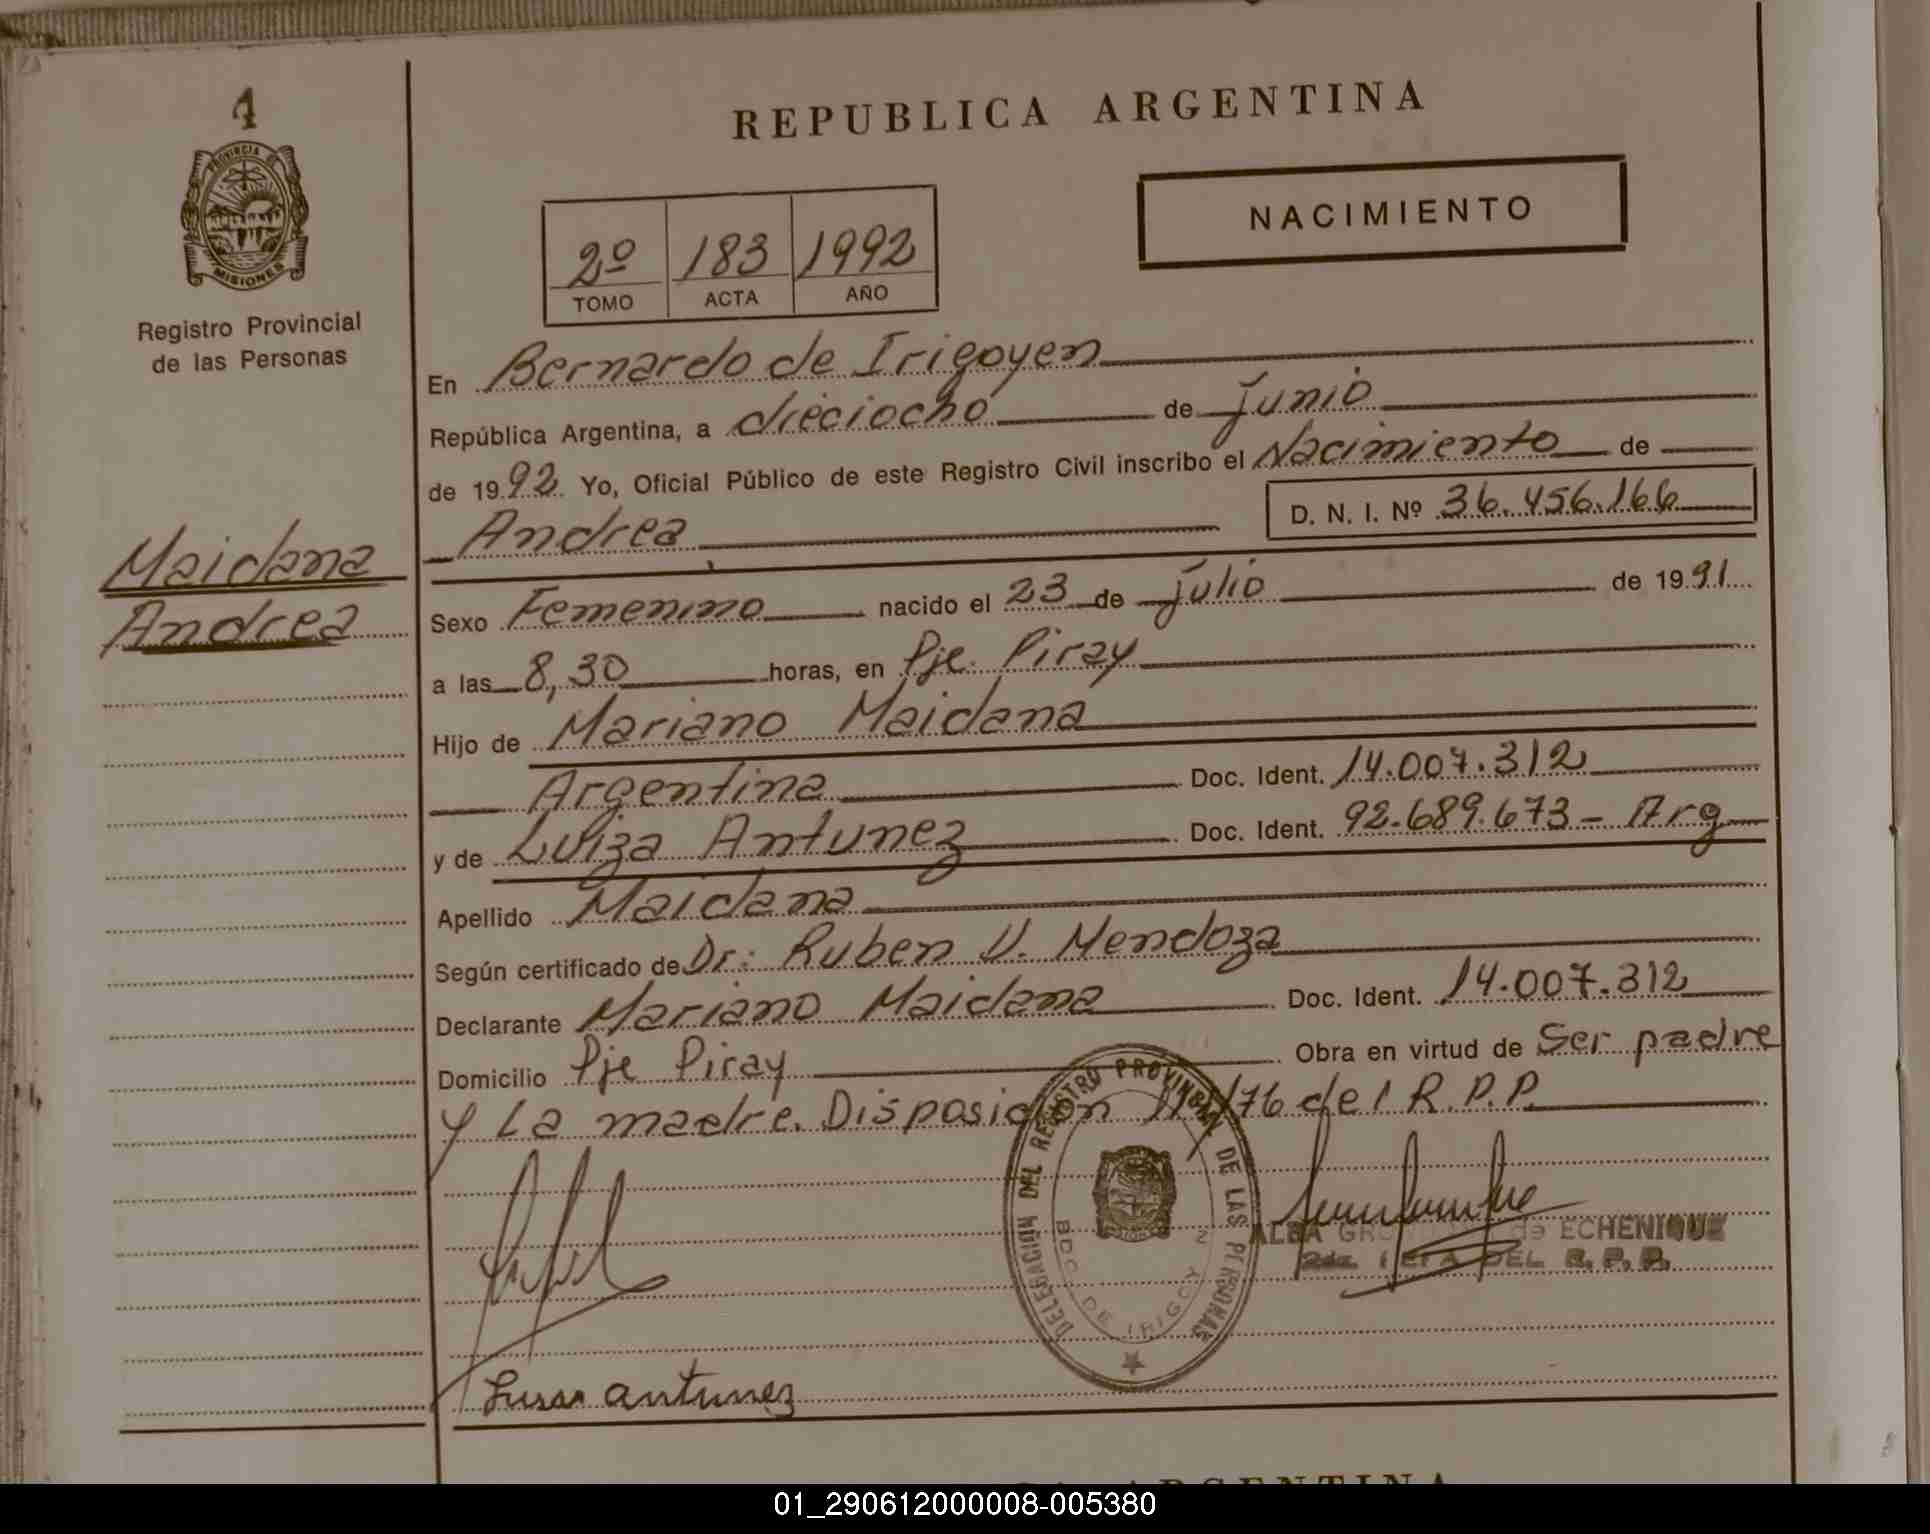 1
PROVINCIA DE
MISIONES
Registro Provincial
de las Personas
Maidana
Andrea
REPUBLICA ARGENTINA
NACIMIENTO
2º 183 1992
TOMO ACTA AÑO
En Bernardo de Irigoyen
República Argentina, a dieciocho de junio
de 1992 Yo, Oficial Público de este Registro Civil inscribo el Nacimiento de
Andrea D. N. I. Nº 36.456.166
Sexo Femenino nacido el 23 de julio de 1991
a las 8,30 horas, en Pje. Piray
Hijo de Mariano Maidana
Argentina Doc. Ident. 14.007.312
y de Luiza Antunez Doc. Ident. 92.689.673 - Arg
Apellido Maidana
Según certificado de Dr: Ruben V. Mendoza
Declarante Mariano Maidana Doc. Ident. 14.007.312
Domicilio Pje Piray Obra en virtud de Ser padre
y La madre. Disposición /76 del R.P.P.
DELEGACION DEL REGISTRO PROVINCIAL DE LAS PERSONAS
BDO. DE IRIGOY
ALBA de ECHENIQUE
2da JEFA DEL R.P.P.
antunez
ARGENTINA
01_290612000008-005380